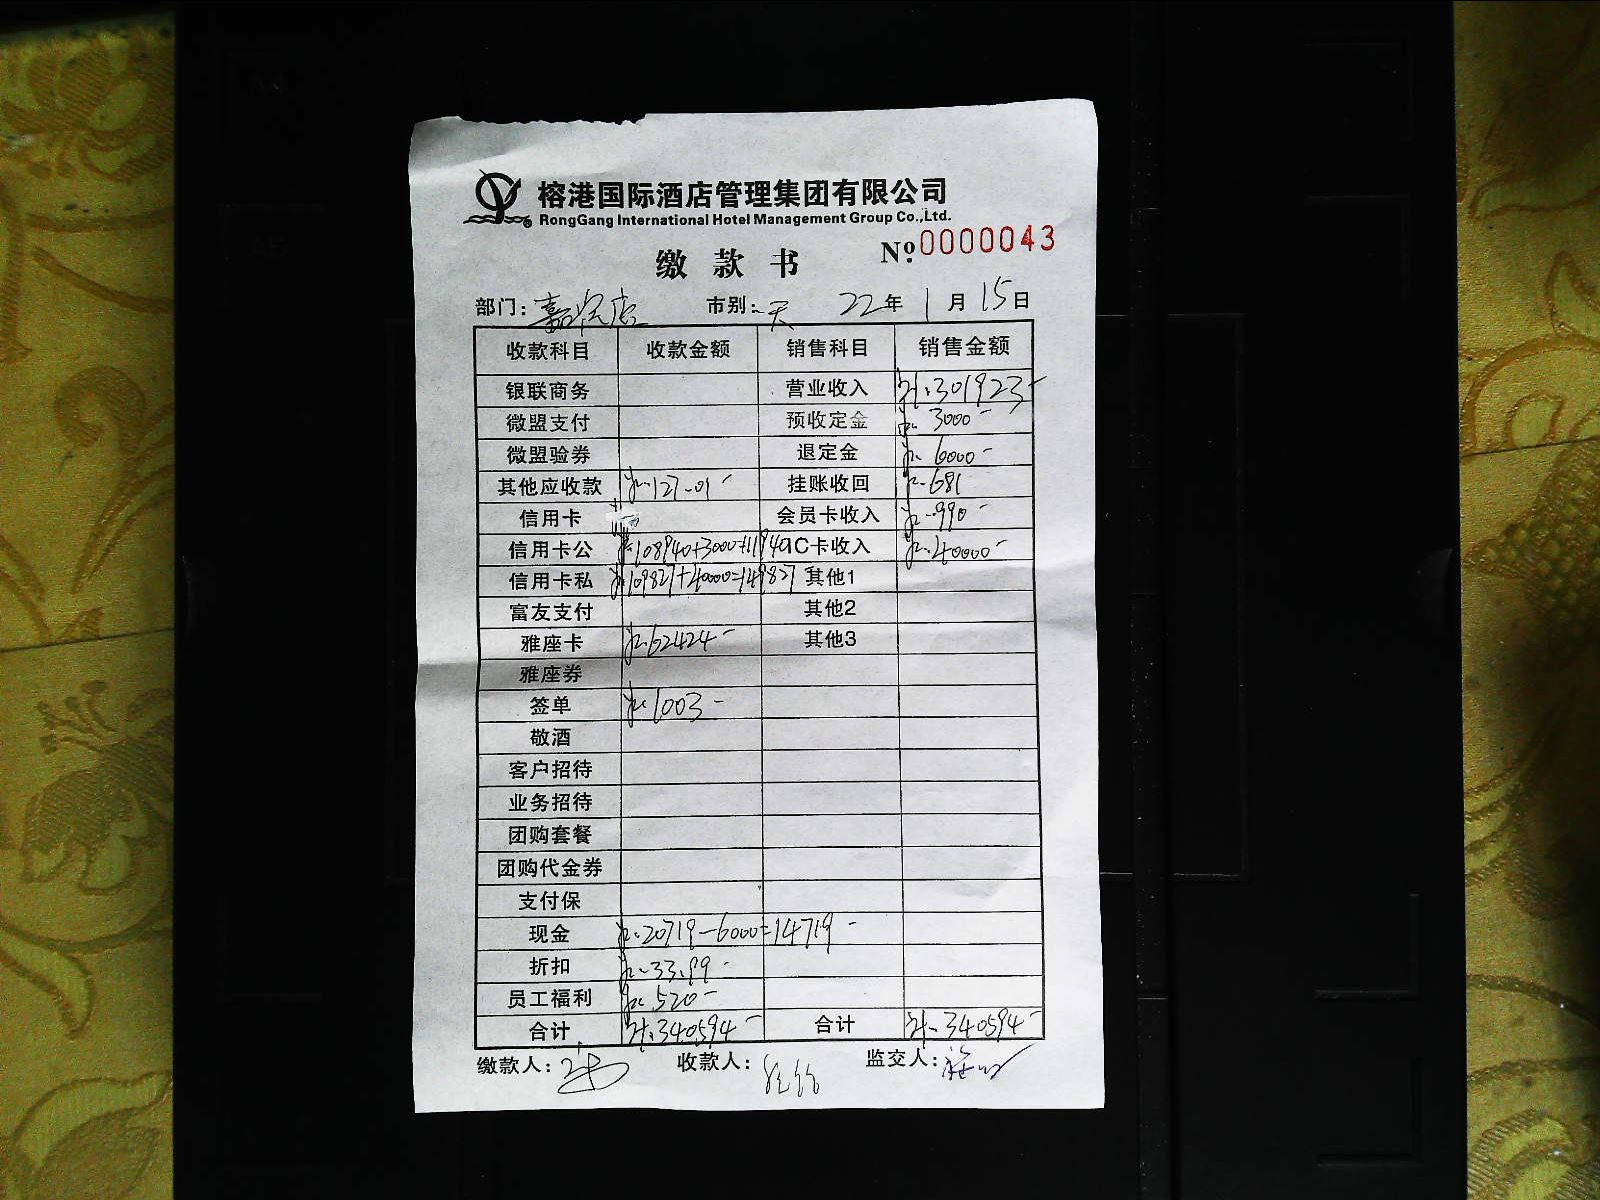 榕港国际酒店管理集团有限公司
RongGang International Hotel Management Group Co.,Ltd.
缴款书 №0000043
部门: 嘉宾店 市别: 天 22年1月15日
收款科目 收款金额 销售科目 销售金额
银联商务 营业收入 计:301923-
微盟支付 预收定金 3000-
微盟验券 退定金 6000-
其他应收款 127.01- 挂账收回 681
信用卡 会员卡收入 990-
信用卡公 108940+3000=111940 IC卡收入 40000-
信用卡私 109827+40000=149827 其他1
富友支付 其他2
雅座卡 62424- 其他3
雅座券
签单 1003-
敬酒
客户招待
业务招待
团购套餐
团购代金券
支付保
现金 20719-6000=14719-
折扣 33.99-
员工福利 520-
合计 计:340594- 合计 计:340594-
缴款人: 收款人: 监交人: